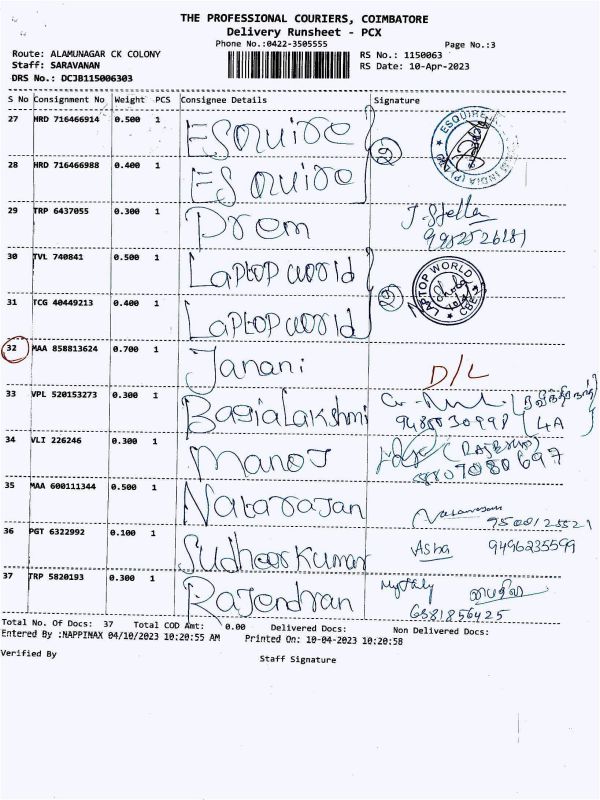 THE PROFESSIONAL COURIERS, COIMBATORE
Delivery Runsheet - PCX
Phone No.:0422-3505555
Page No.:3
Route: ALAMUNAGAR CK COLONY
RS No.: 1150063
Staff: SARAVANAN
RS Date: 10-Apr-2023
DRS No.: DCJB115006303
S No Consignment No Weight PCS Consignee Details Signature
27 HRD 716466914 0.500 1 ESQUIRE
28 HRD 716466988 0.400 1 ESQUIRE
ESQUIRE
29 TRP 6437055 0.300 1 Prem J. Stella
30 TVL 740841 0.500 1 Laptop world
LAPTOP WORLD
31 TCG 40449213 0.400 1 Laptop world
32 MAA 858813624 0.700 1 Janani D/L
33 VPL 520153273 0.300 1 BagiaLakshmi
4A
34 VLI 226246 0.300 1 Manoj
8807080697
35 MAA 600111344 0.500 1 Natarajan
36 PGT 6322992 0.100 1 Sudheer Kumar Asha 9496235599
37 TRP 5820193 0.300 1 Rajendran
6381856425
Total No. Of Docs: 37 Total COD Amt: 0.00 Delivered Docs: Non Delivered Docs:
Entered By :NAPPINAX 04/10/2023 10:20:55 AM Printed On: 10-04-2023 10:20:58
Verified By
Staff Signature